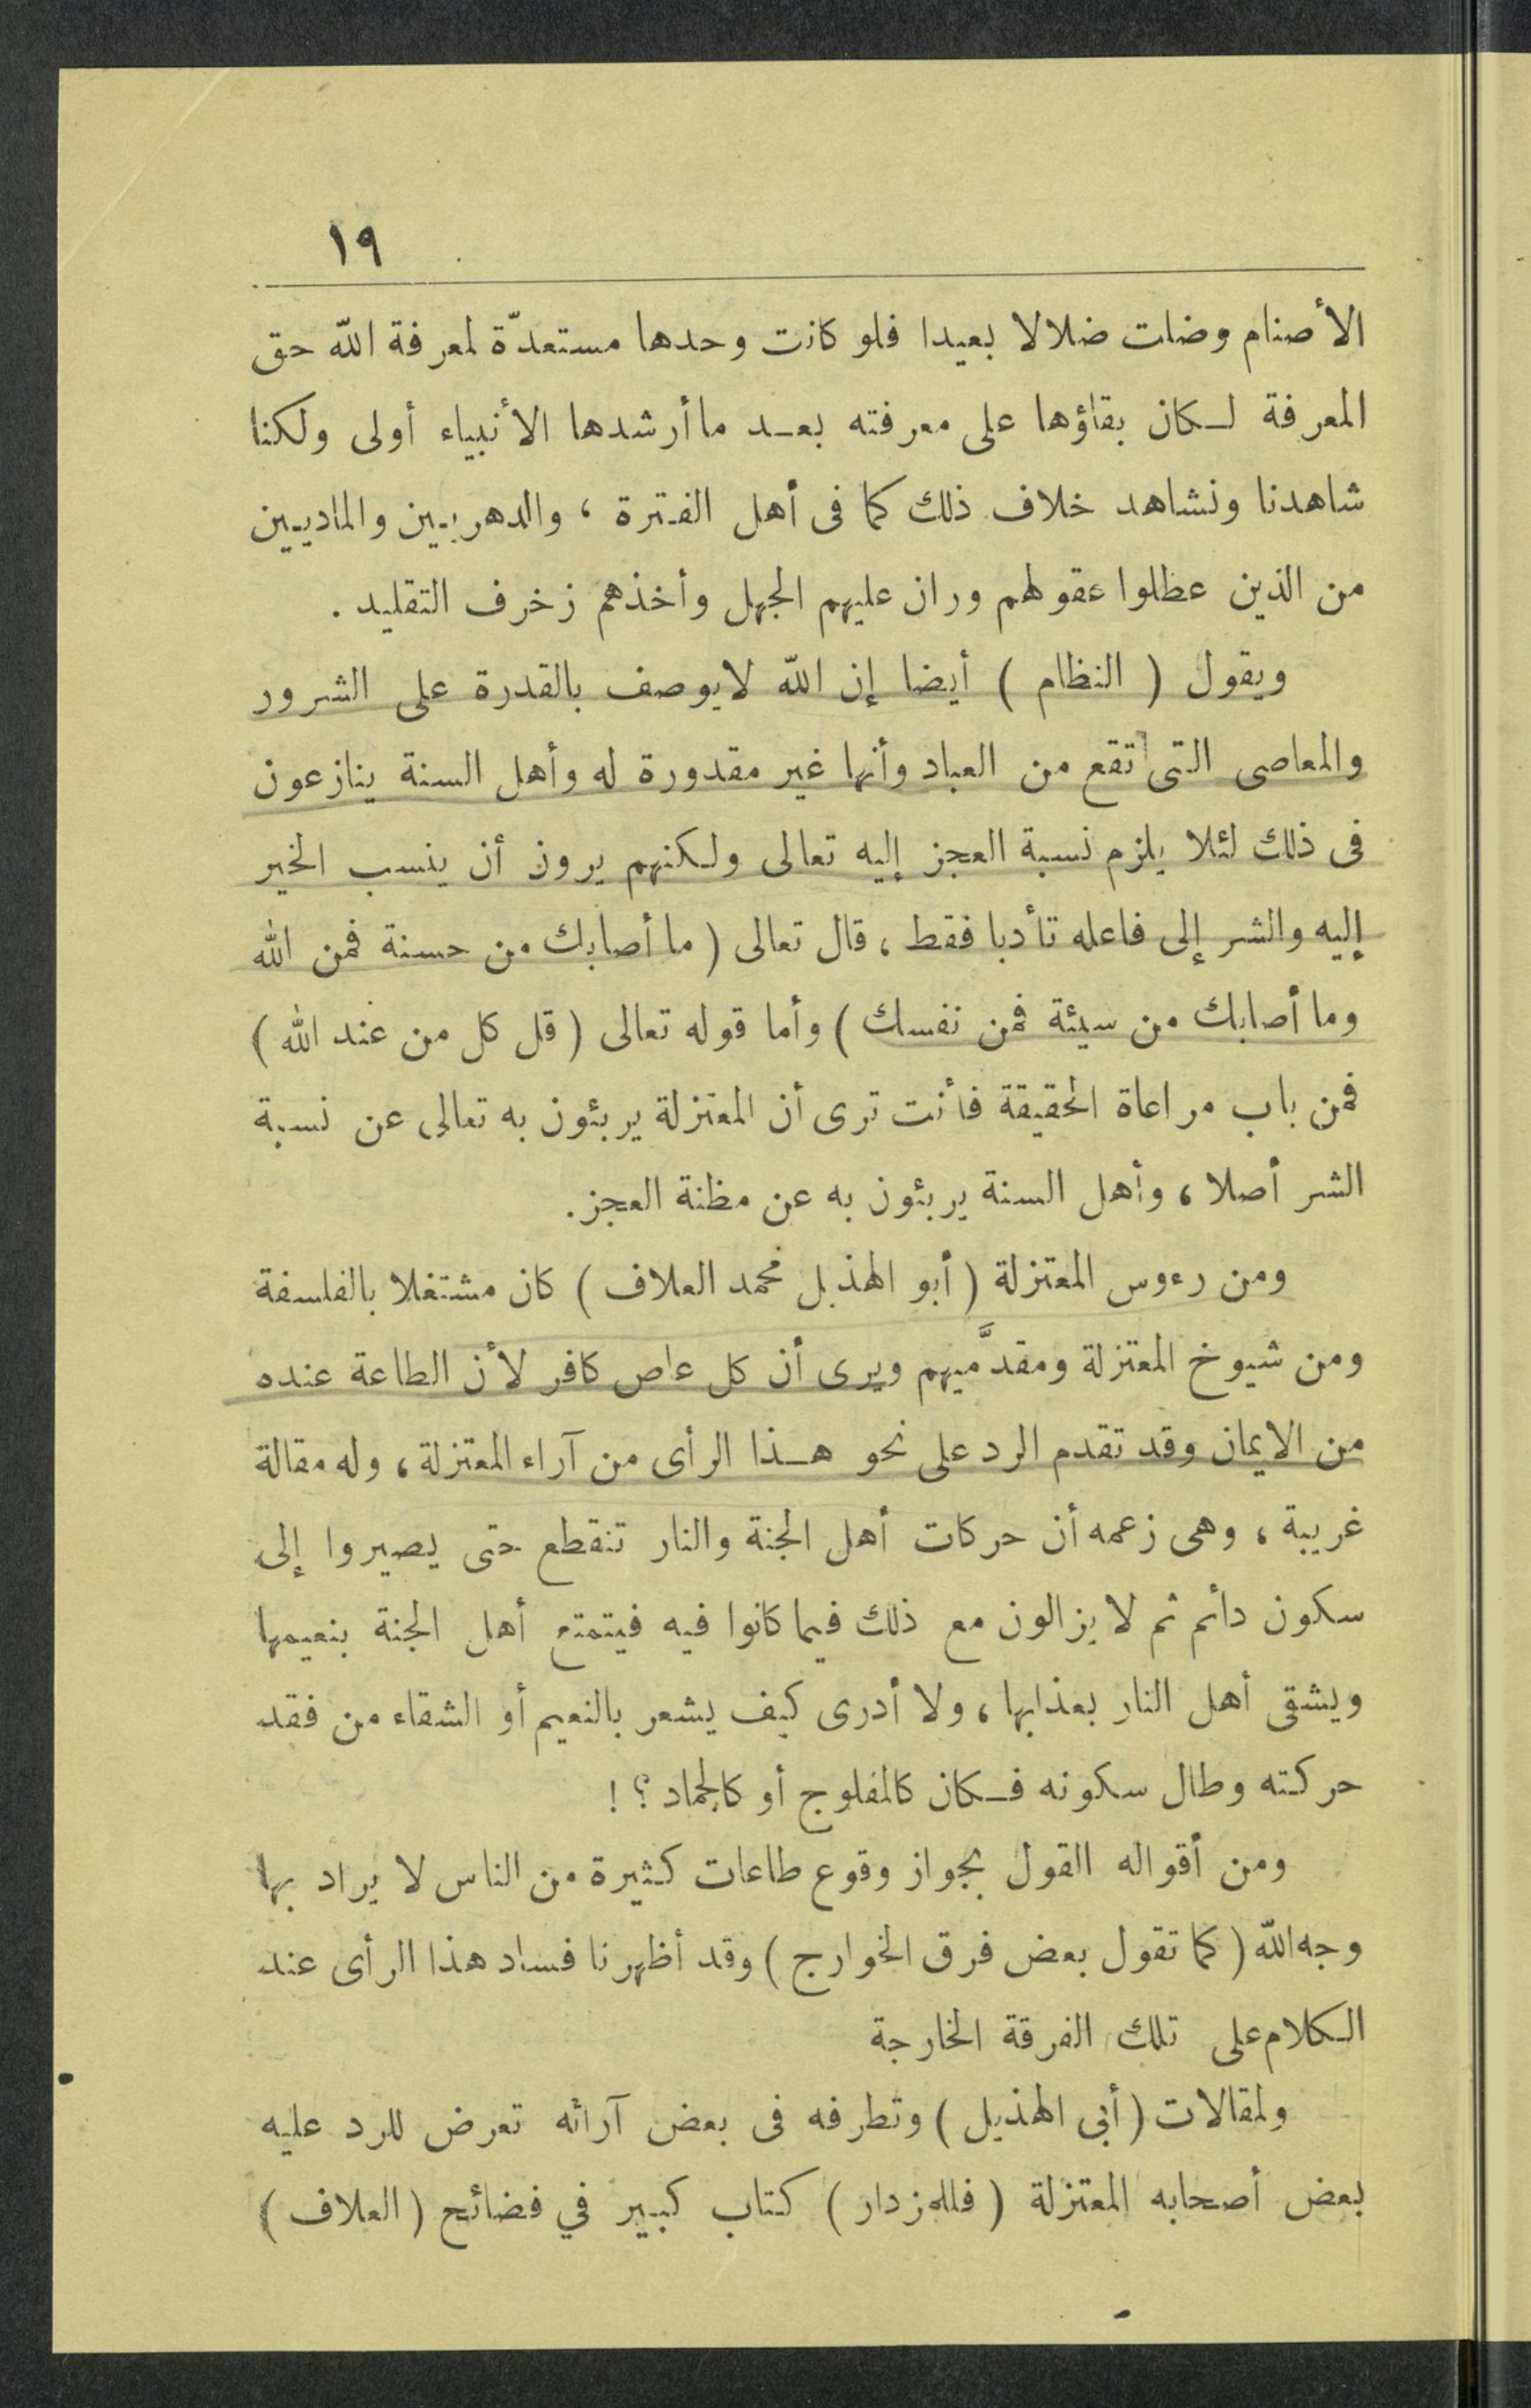 ١٩
الأصنام وضلت ضلالا بعيدا فلو كانت وحدها مستعدّة لمعرفة الله حق
المعرفة لكان بقاؤها على معرفته بعد ما أرشدها الأنبياء أولى ولكنا
شاهدنا ونشاهد خلاف ذلك كما فى أهل الفترة ، والدهريين والماديين
من الذين عطلوا عقولهم وران عليهم الجهل وأخذهم زخرف التقليد .
ويقول ( النظام ) أيضا إن الله لا يوصف بالقدرة على الشرور
والمعاصى التى تقع من العباد وأنها غير مقدورة له وأهل السنة ينازعون
فى ذلك لئلا يلزم نسبة العجز إليه تعالى ولكنهم يرون أن ينسب الخير
إليه والشر إلى فاعله تأدبا فقط ، قال تعالى ( ما أصابك من حسنة فمن الله
وما أصابك من سيئة فمن نفسك ) وأما قوله تعالى ( قل كل من عند الله )
فمن باب مراعاة الحقيقة فأنت ترى أن المعتزلة يربئون به تعالى عن نسبة
الشر أصلا ، وأهل السنة يربئون به عن مظنة العجز.
ومن رءوس المعتزلة ( أبو الهذيل محمد العلاف ) كان مشتغلا بالفلسفة
ومن شيوخ المعتزلة ومقدَّميهم ويرى أن كل عاص كافر لأن الطاعة عنده
من الايمان وقد تقدم الرد على نحو هذا الرأى من آراء المعتزلة ، وله مقالة
غريبة ، وهى زعمه أن حركات أهل الجنة والنار تنقطع حتى يصيروا إلى
سكون دائم ثم لا يزالون مع ذلك فيما كانوا فيه فيتمتع أهل الجنة بنعيمها
ويشقى أهل النار بعذابها ، ولا أدرى كيف يشعر بالنعيم أو الشقاء من فقد
حركته وطال سكونه فكان كالمفلوج أو كالجماد ؟ !
ومن أقواله القول بجواز وقوع طاعات كثيرة من الناس لا يراد بها
وجه الله ( كما تقول بعض فرق الخوارج ) وقد أظهرنا فساد هذا الرأى عند
الكلام على تلك الفرقة الخارجة
ولمقالات ( أبى الهذيل ) وتطرفه فى بعض آرائه تعرض للرد عليه
بعض أصحابه المعتزلة ( فللمزدار ) كتاب كبير في فضائح ( العلاف )